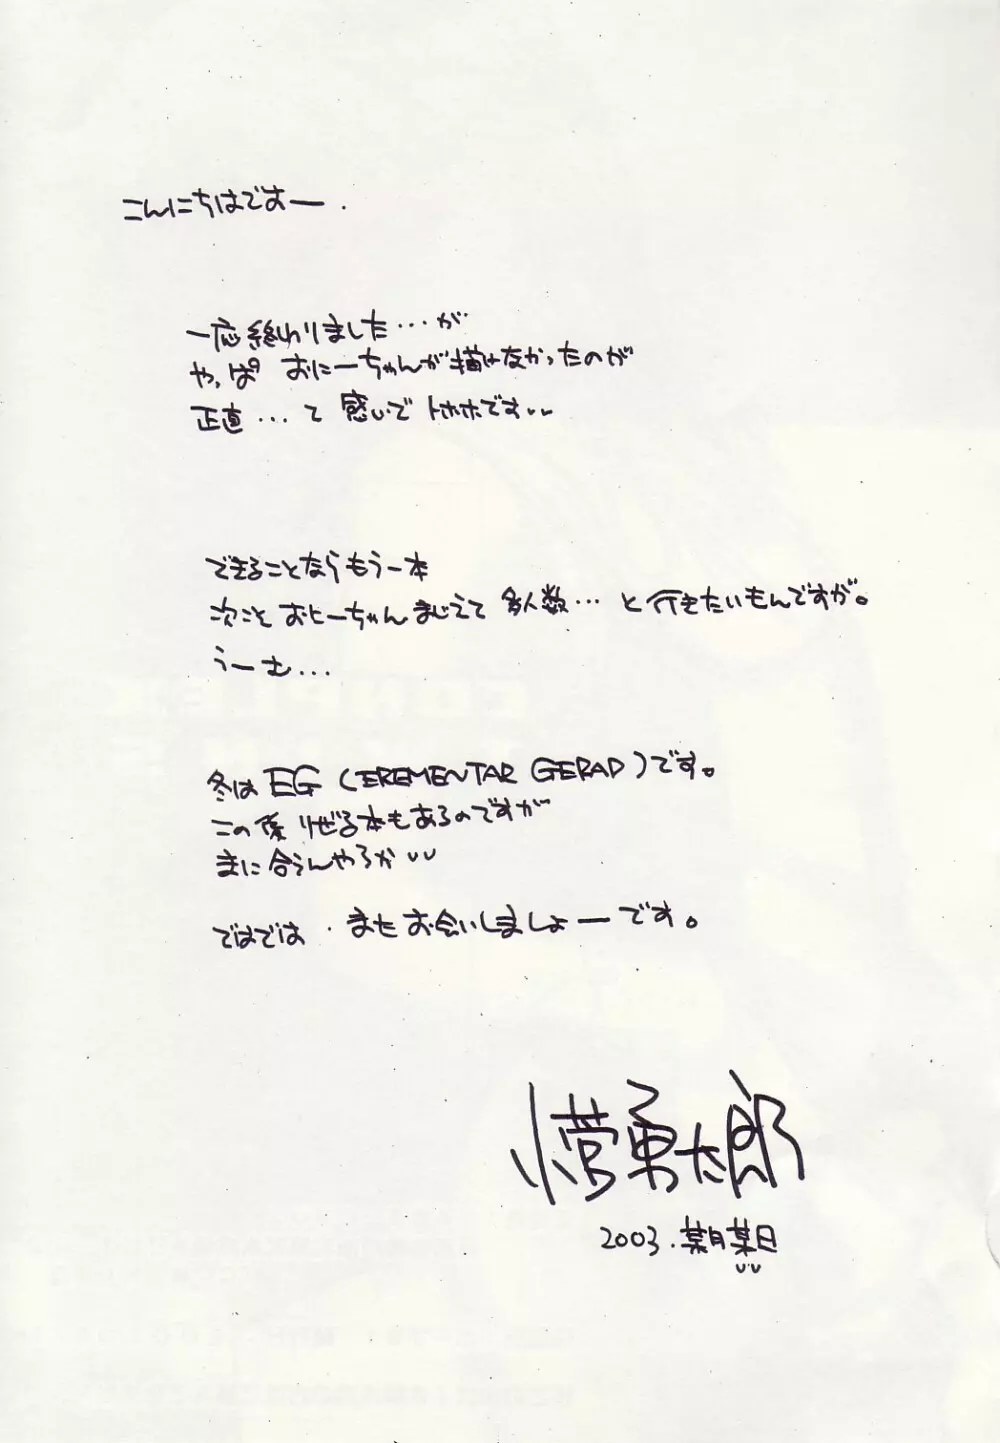 こんにちはですー.
一応終わりました…が
やっぱ おにーちゃんが描けなかったのが
正直…て 感じで トホホです
できることならもう一本
次こそ おにーちゃん まじえて 多人数…と行きたいもんですが。
うーむ…
冬は EG (EREMENTAR GERAD)です。
この係 りぜる本もあるのですが
まに合うんやろか
ではでは.またお会いしましょーです。
小菅勇太郎
2003.某月某日